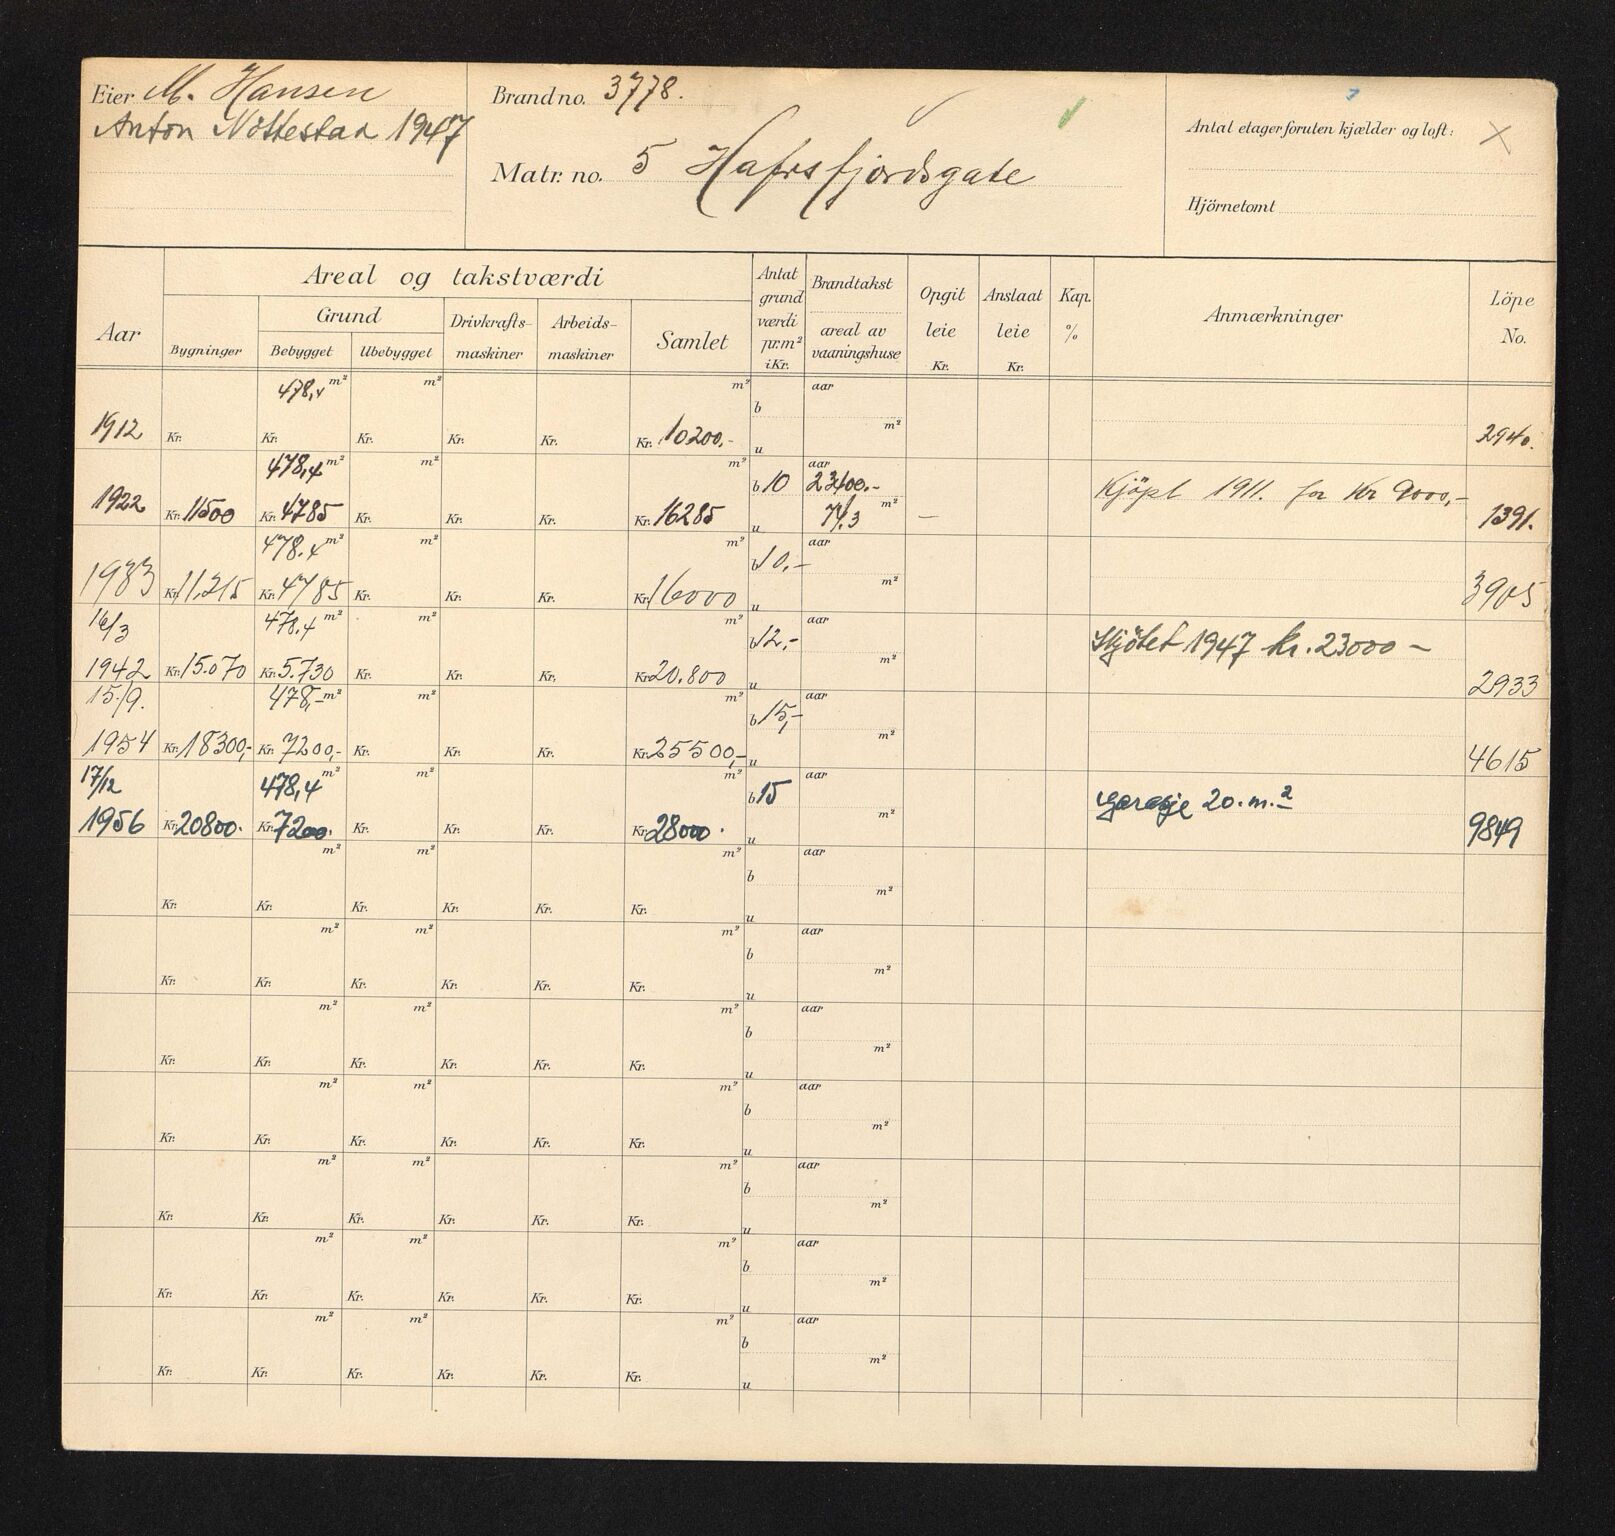 Eier M. Hansen
Anton Nöttestad 1947
Brand no. 3778.
Matr. no. 5 Hafrsfjordsgate
Antal etager foruten kjælder og loft: X
Hjörnetomt
Areal og takstværdi
Aar
Bygninger
Grund
Bebygget Ubebygget
Drivkrafts-maskiner
Arbeids-maskiner
Samlet
Antat grund værdi pr. m² i Kr.
Brandtakst
areal av vaaningshuse
Opgit leie Kr.
Anslaat leie Kr.
Kap. %
Anmærkninger
Löpe No.
478,4 m² m² m² aar
b
m²
1912 Kr. Kr. Kr. Kr. Kr. Kr. 10200,- u 2940.
478,4 m² m² m² aar
b 10 23400.- Kjöpt 1911. for Kr 9000,-
1922 Kr. 11500 Kr. 4785 Kr. Kr. Kr. Kr. 16285 u 74,3 m² — 1391.
478.4 m² m² m² aar
b 10,-
m²
1933 Kr. 11.215 Kr. 4785 Kr. Kr. Kr. Kr. 16000 u 3905
16/3 478.4 m² m² m² aar
b 12,- Skjötet 1947 kr. 23000 -
m²
1942 Kr. 15.070 Kr. 5.730 Kr. Kr. Kr. Kr. 20.800 u 2933
15/9. 478,- m² m² m² aar
b 15,-
m²
1954 Kr. 18300,- Kr. 7200,- Kr. Kr. Kr. Kr. 25500,- u 4615
17/12 478,4 m² m² m² aar
b 15 Garasje 20.m.²
m²
1956 Kr. 20800. Kr. 7200. Kr. Kr. Kr. Kr. 28000. u 9849
m² m² m² aar
b
m²
Kr. Kr. Kr. Kr. Kr. Kr. u
m² m² m² aar
b
m²
Kr. Kr. Kr. Kr. Kr. Kr. u
m² m² m² aar
b
m²
Kr. Kr. Kr. Kr. Kr. Kr. u
m² m² m² aar
b
m²
Kr. Kr. Kr. Kr. Kr. Kr. u
m² m² m² aar
b
m²
Kr. Kr. Kr. Kr. Kr. Kr. u
m² m² m² aar
b
m²
Kr. Kr. Kr. Kr. Kr. Kr. u
m² m² m² aar
b
m²
Kr. Kr. Kr. Kr. Kr. Kr. u